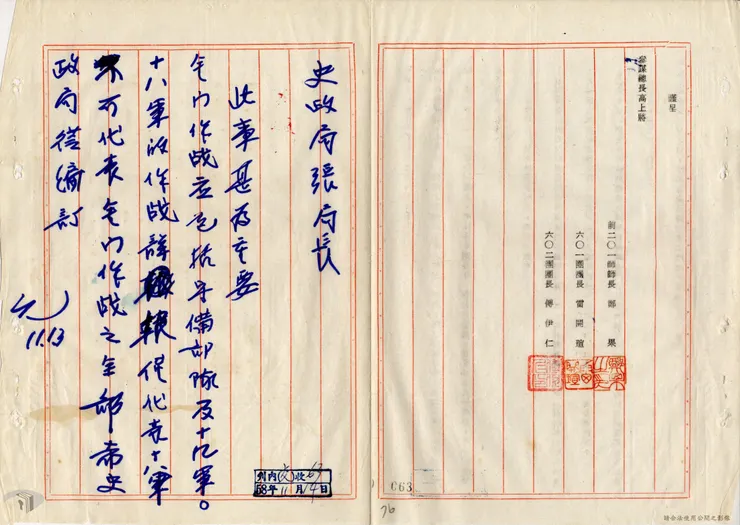 謹呈
參謀總長高上將
前二〇一師師長 鄭 果
六〇一團團長 雷開瑄
六〇二團團長 傅伊仁
史政局張局長
此事甚為重要
金門作戰應包括守備部隊及十九軍。
十八軍的作戰詳報僅代表十八軍
不可代表金門作戰之全部希史
政局從新訂
11.13
列內(史)收63
58年11月14日
063
76
請合法使用公開之影像